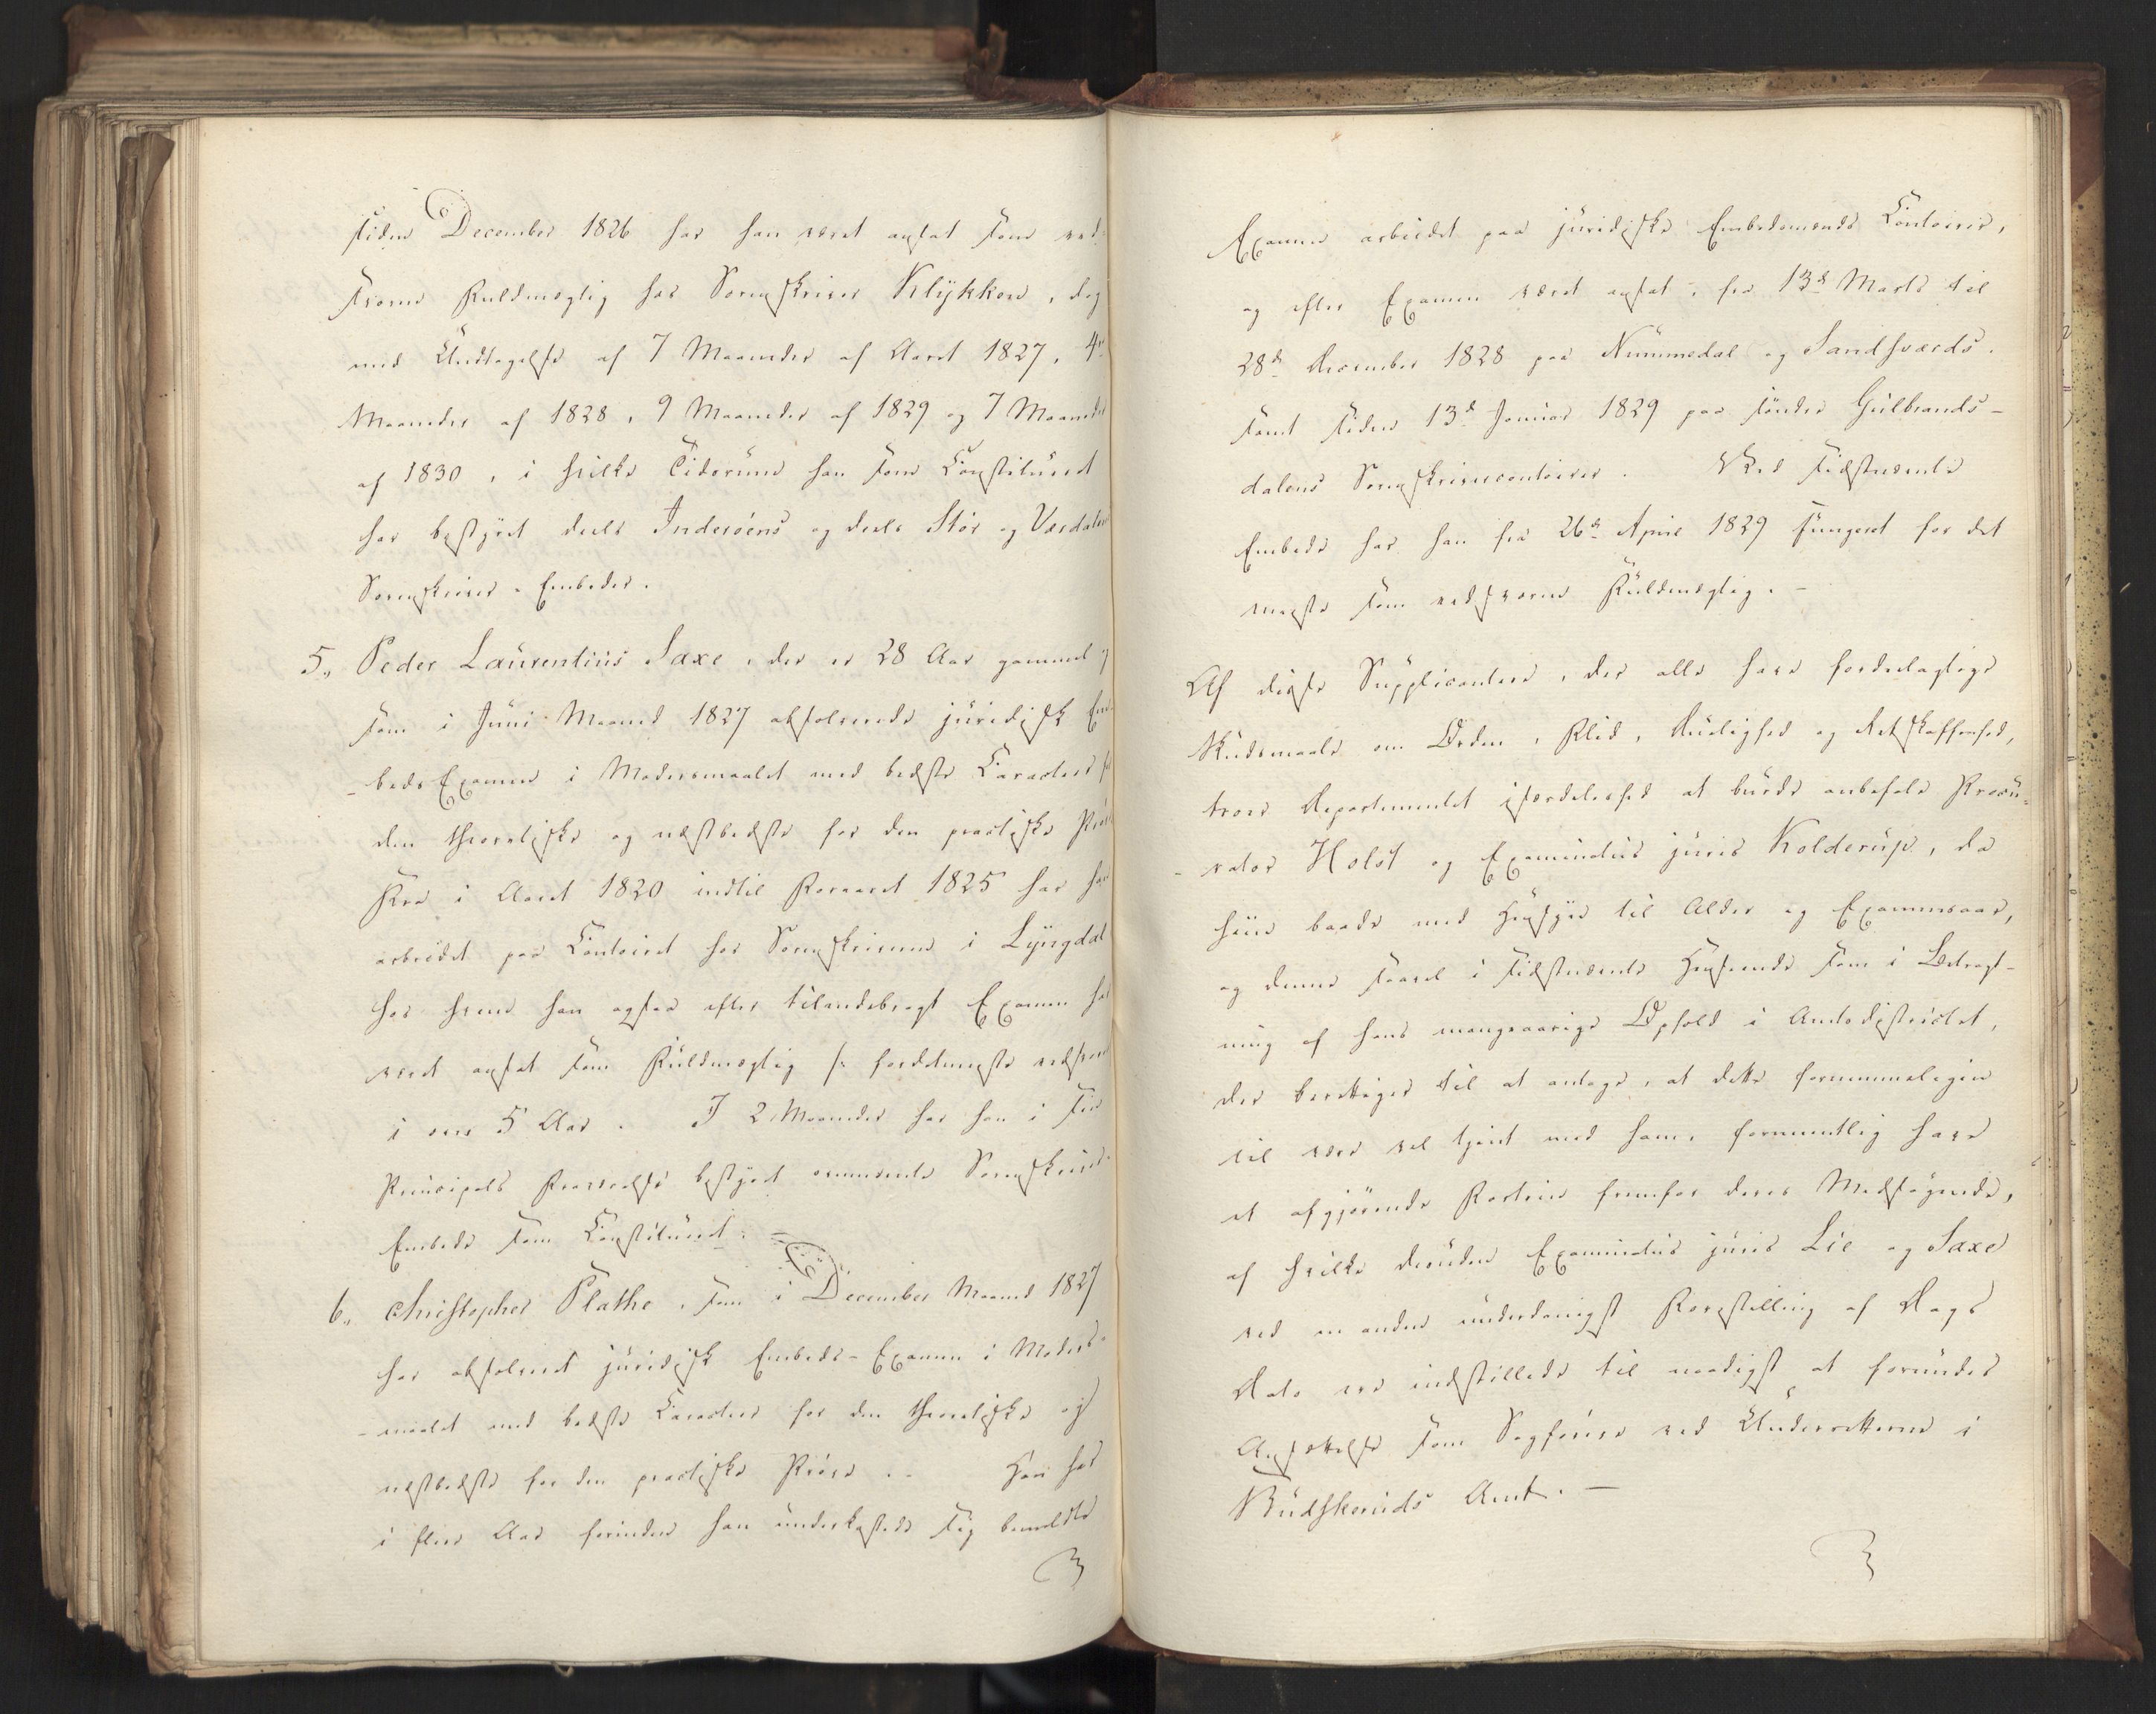 siden December 1826 har han været ansat som ed-
svoren Fuldmægtig hos Sorenskriver Klykken, dog
med Undtagelse af 7 Maaneder af Aaret 1827, 4
Maaneder af 1828, 9 Maaneder af 1829 og 7 Maaneder
af 1830, i hvilke Tidsrum han som Constitueret
har bestyret deels Inderöens og deels Stör og Værdalens
Sorenskriver-Embeder.
5, Peder Laurentius Saxe, der er 28 Aar gammel og
som i Juni Maaned 1827 absolverede juridisk Em-
-beds Examen i Modersmaalet med bedste Caracteer for
den theoretiske og næstbedste for den practiske Pröve
Fra i Aaret 1820 indtil Foraaret 1825 har han
arbeidet paa Contoiret hos Sorenskriveren i Lyngdal
hos hvem han ogsaa efter tilendebragt Examen har
været ansat som Fuldmægtig /: fordetmeste edsvoren
i over 5 Aar. I 2 Maaneder har han i sin
Principals Fraværelse bestyret ommeldte Sorenskriver-
Embede som Constitueret.
6, Christopher Plathe, som i December Maaned 1827
har absolveret juridisk Embeds-Examen i Moders-
-maalet med bedste Caracteer for den theoretiske og
næstbedste for den practiske Pröve. - Han har
i flere Aar forinden han underkastede sig bemeldte
Examen arbeidet paa juridiske Embedsmænds Contoirer,
og efter Examen været ansat, fra 13de Marts til
28de December 1828 paa Nummedal og Sandsværds.
samt siden 13de Januar 1829 paa söndre Gulbrands-
dalens Sorenskrivercontoirer. Ved sidstnævnte
Embede har han fra 26de April 1829 fungeret for det
meste som edsvoren Fuldmægtig. -
Af disse Supplicantere, der alle have fordeelagtige
Skudsmaale om Orden, Flid, Duelighed og Retskaffenhed,
troer Departementet isærdeleshed at burde anbefale Procu-
-rator Holst og Examinatus juris Kolderup, da
hiin baade med Hensyn til Alder og Examensaar,
og denne saavel i sidstnævnte Henseende som i Betragt-
ning af hans mangeaarige Ophold i Amtsdistrictet,
der berettiger til at antage, at dette formeenligen
vil være vel tjent med ham, formeentlig have
et afgjörende Fortrin fremfor deres Medsögende,
af hvilke desuden Examinatus juris Lie og Saxe
ved en anden underdanigst Forestilling af Dags
Dato ere indstillede til naadigst at forundes
Ansættelse som Sagförere ved Underretterne i
Budskeruds Amt. -